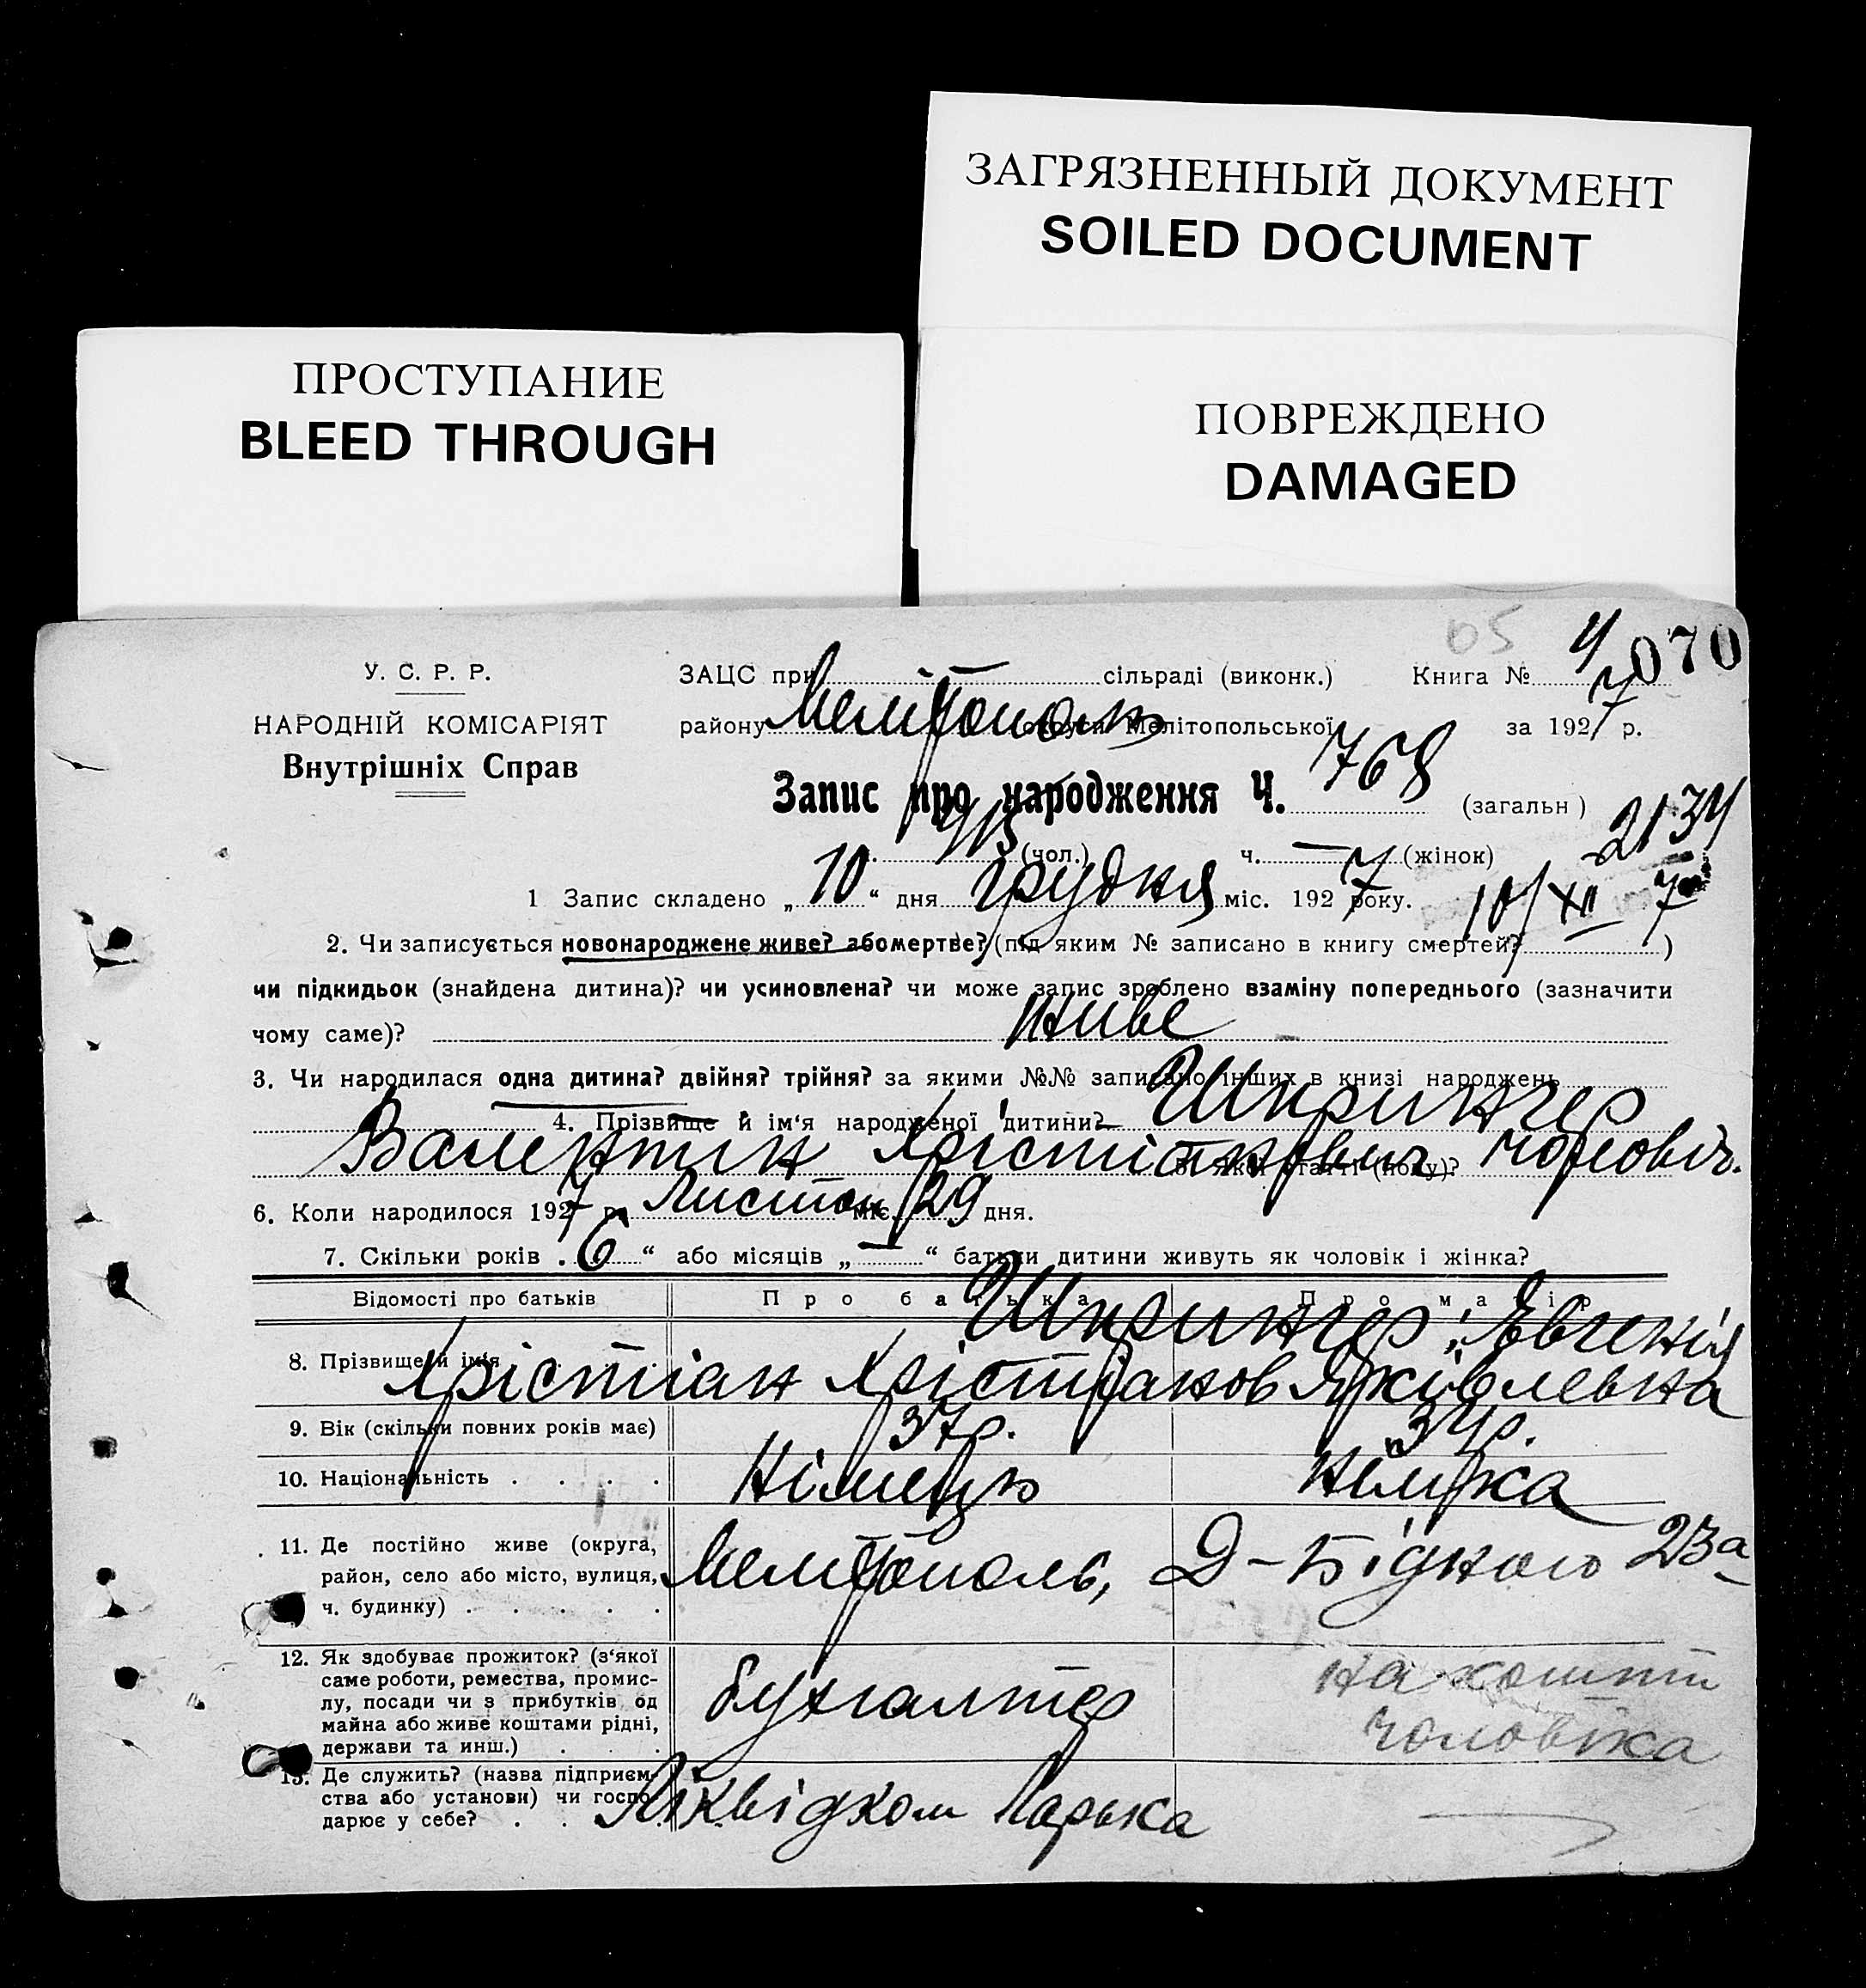 ЗАГРЯЗНЕННЫЙ ДОКУМЕНТ
SOILED DOCUMENT
ПРОСТУПАНИЕ
BLEED THROUGH
ПОВРЕЖДЕНО
DAMAGED
65 4/7 070
У. С. Р. Р.
НАРОДНІЙ КОМІСАРІЯТ
Внутрішніх Справ
ЗАЦС при — сільраді (виконк.) Книга №
району Мелітополь округи Мелітопольської за 1927 р.
Запис про народження Ч. 768 (загальн )
(чол.) ч. — (жінок) 2134
1 Запис складено „ 10 “ дня грудня міс. 1927 року. 10/XII 7
2. Чи записується новонароджене живе? або мертве? (під яким № записано в книгу смертей? )
чи підкидьок (знайдена дитина)? чи усиновлена? чи може запис зроблено взаміну попереднього (зазначити
чому саме)? живе
3. Чи народилася одна дитина? двійня? трійня? за якими №№ записано інших в книзі народжень
4. Прізвище й ім‘я народженої дитини? Шпрингер
Валентин Хрістіанович 5. якої статті (полу)? чоловіч.
6. Коли народилося 1927 р. Листоп міс. 29 дня.
7. Скільки років . 6 “ або місяців „ — “ батьки дитини живуть як чоловік і жінка?
Відомості про батьків Про батька Про матір
8. Прізвище й ім‘я Шпрингер Євгенія
Хрістіан Хрістіанов Яківлевна
9. Вік (скільки повних років має) 37р. 34р.
10. Національність . . . . Німець Німка
11. Де постійно живе (округа,
район, село або місто, вулиця, Мелітополь, Д-Бідного 23а
ч. будинку) . . . . .
12. Як здобуває прожиток? (з‘якої
саме роботи, ремества, промис-
лу, посади чи з прибутків од
майна або живе коштами рідні,
держави та инш.) . . .
бухгалтер
на кошти
чоловіка
13. Де служить? (назва підприєм-
ства або установи) чи госпо-
дарює у себе? . . .
Ліквідком